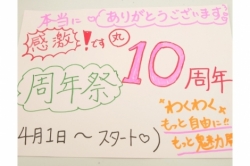 本当に♡ありがとうございます
感激!です
丸
10周年
周年祭
わくわく
もっと自由に!!
もっと魅力
4月1日~スタート♡)